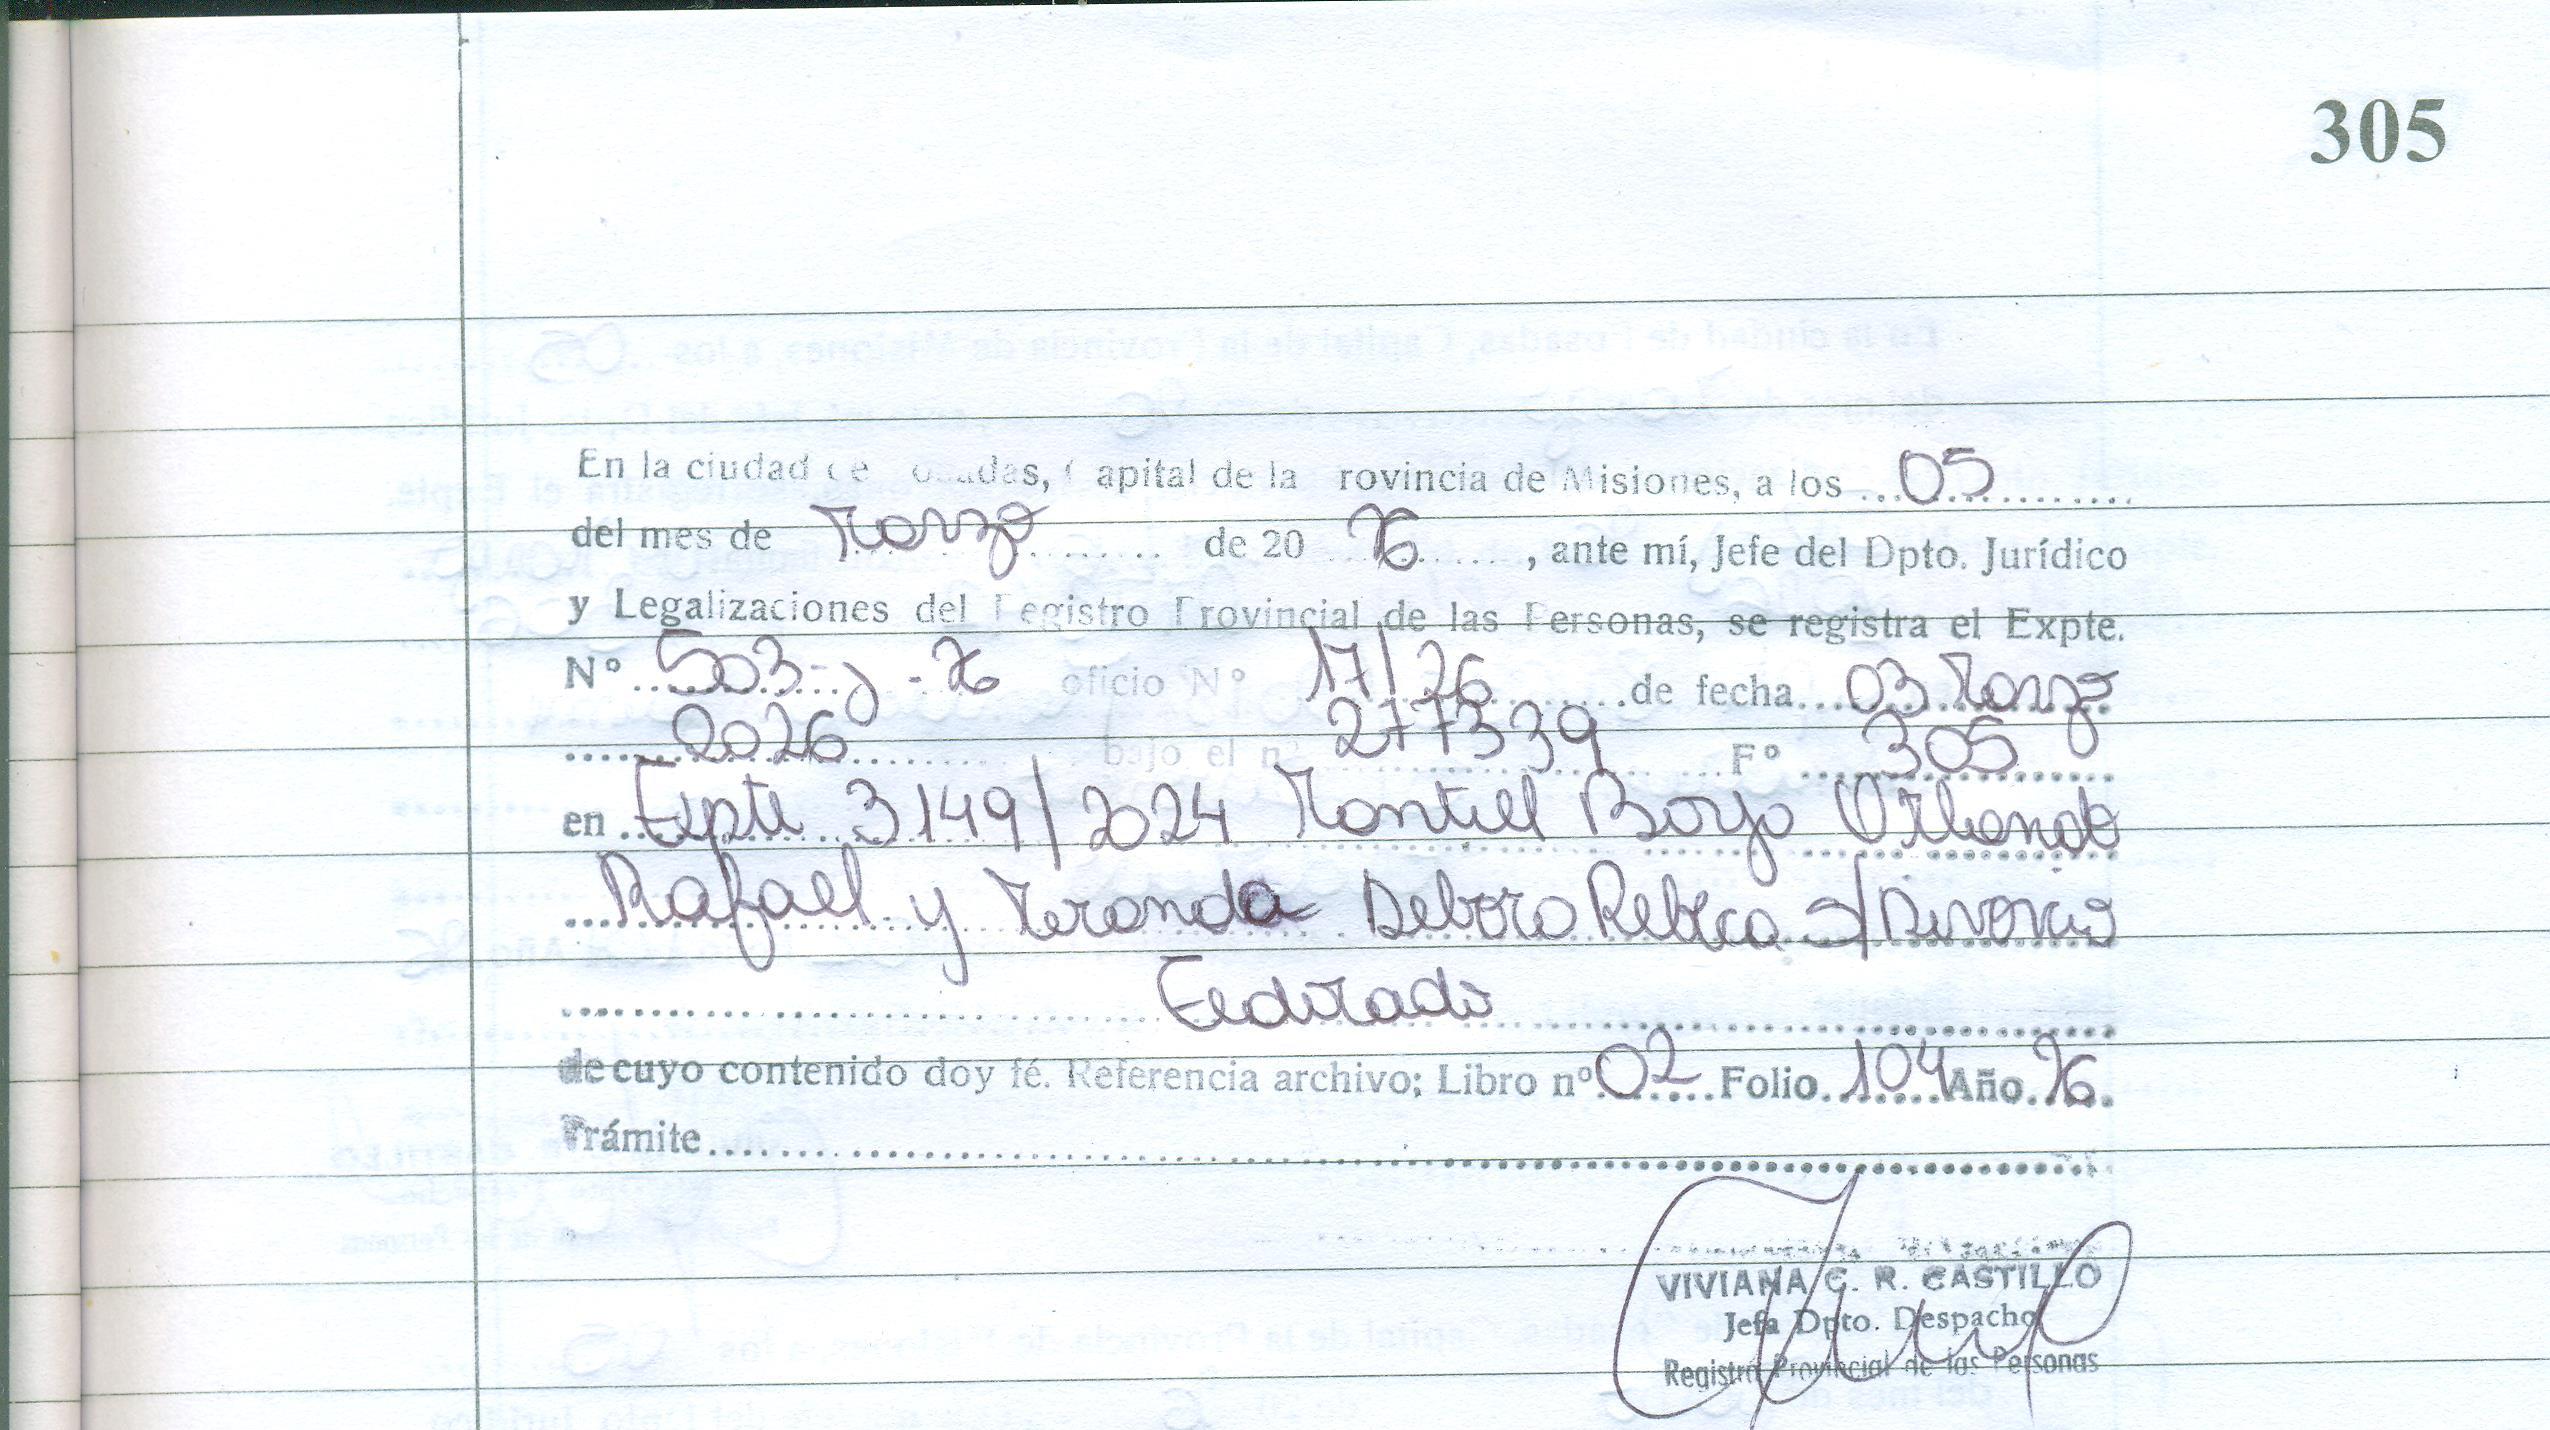 305
En la ciudad de Posadas, Capital de la Provincia de Misiones, a los 05
del mes de Marzo de 20 26, ante mí, Jefe del Dpto. Jurídico
y Legalizaciones del Registro Provincial de las Personas, se registra el Expte.
Nº 503-J-26 oficio Nº 17/26 de fecha 03 Marzo
2026 bajo el nº 277339 Fº 305
en Expte 3149/2024 Montiel Borja Orlando
Rafael y Miranda Debora Rebeca s/Divorcio
Eldorado
de cuyo contenido doy fé. Referencia archivo; Libro nº 02 Folio 104 Año 26.
Trámite
VIVIANA C. R. CASTILLO
Jefa Dpto. Despacho
Registro Provincial de las Personas